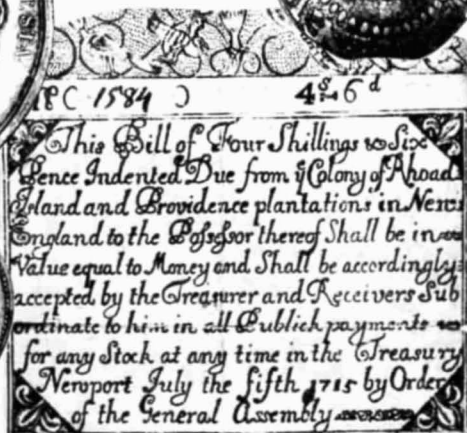 N? ( 1584 ) 4s=6d
This Bill of Four Shillings & Six
Pence Indented Due from ye Colony of Rhoad
Island and Providence plantations in New=
England to the Possessor thereof Shall be in
Value equal to Money and Shall be accordingly
accepted by the Treasurer and Receivers Sub
ordinate to him in all Publick payments
for any Stock at any time in the Treasury
Newport July the fifth 1715 by Order
of the General Assembly